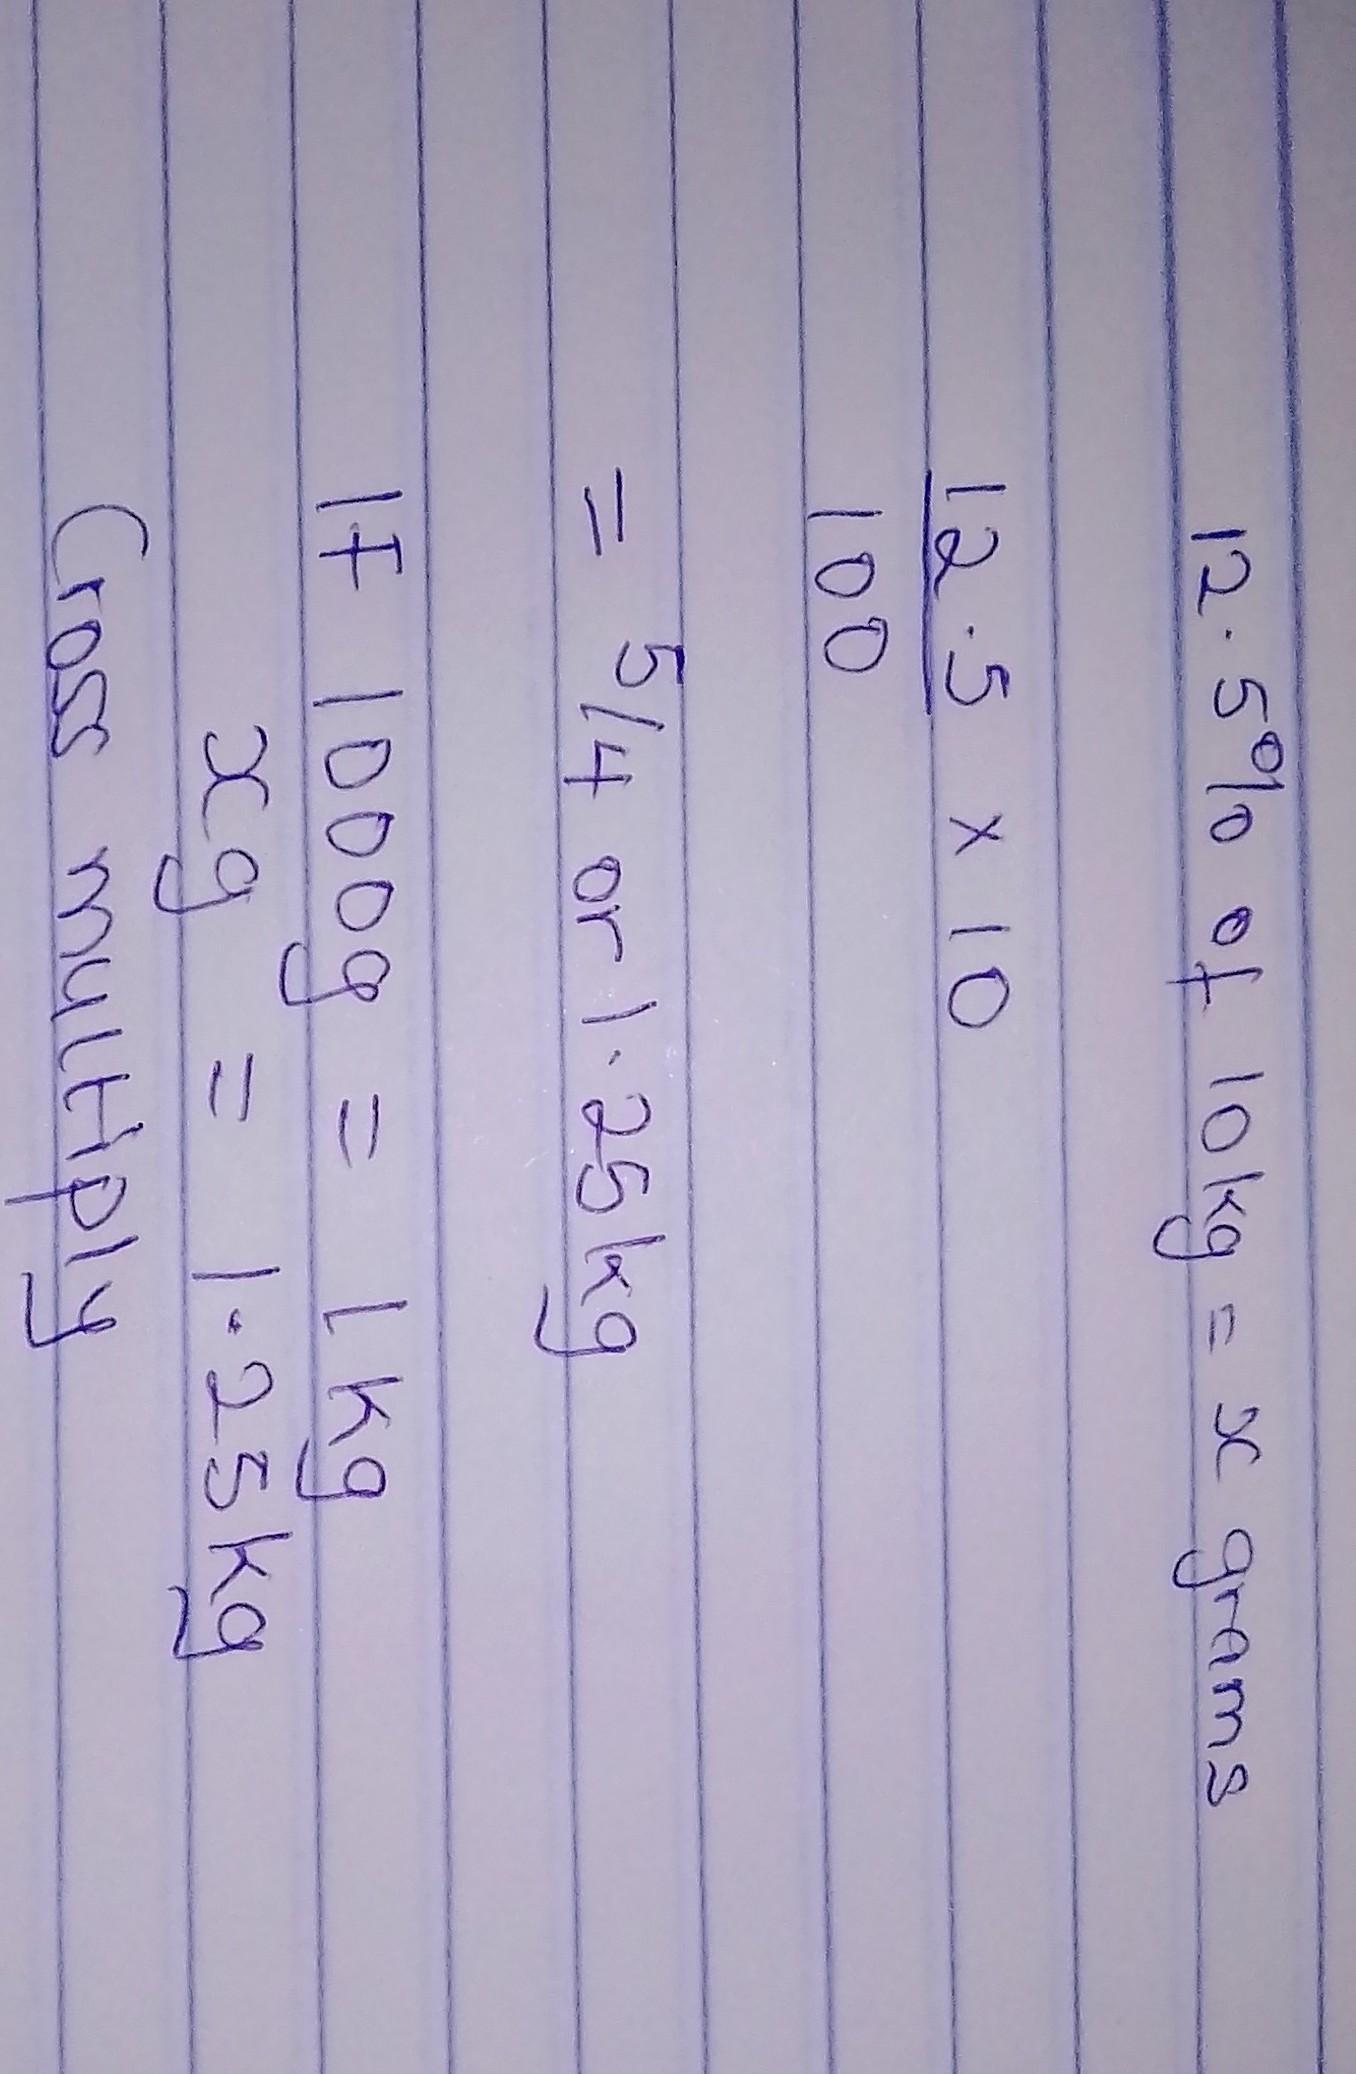 12.5% of 10kg = x grams
12.5 x 10
100
= 5/4 or 1.25kg
IF 1000g = 1kg
xg = 1.25kg
Cross multiply